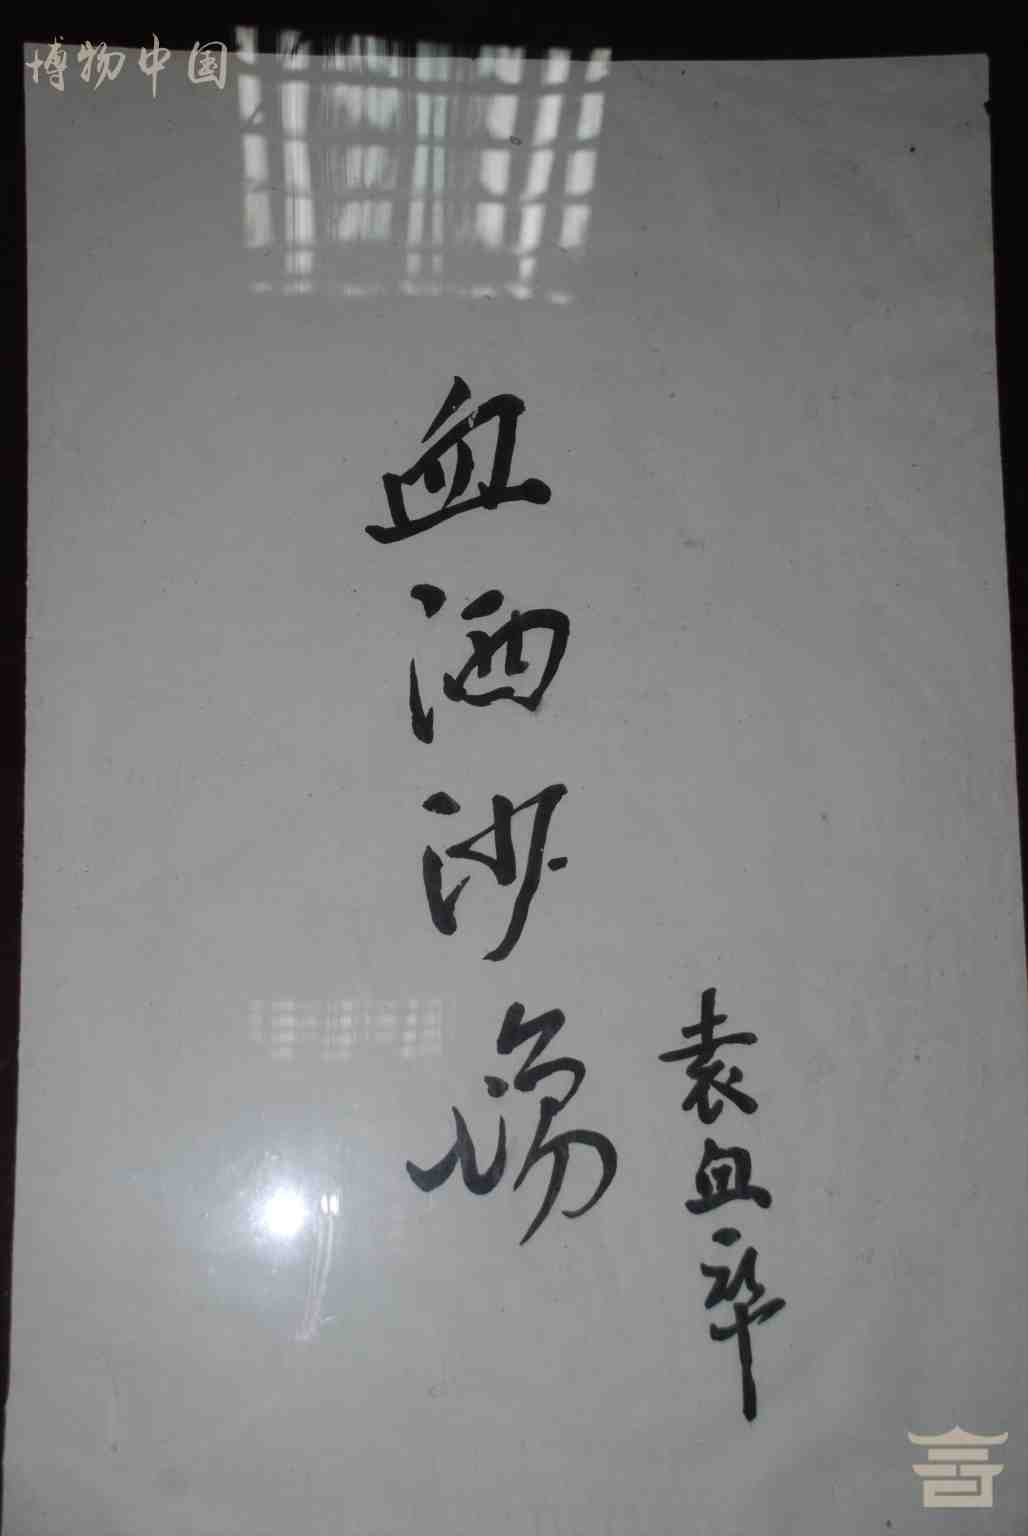 博物中国
血洒沙场
袁血卒